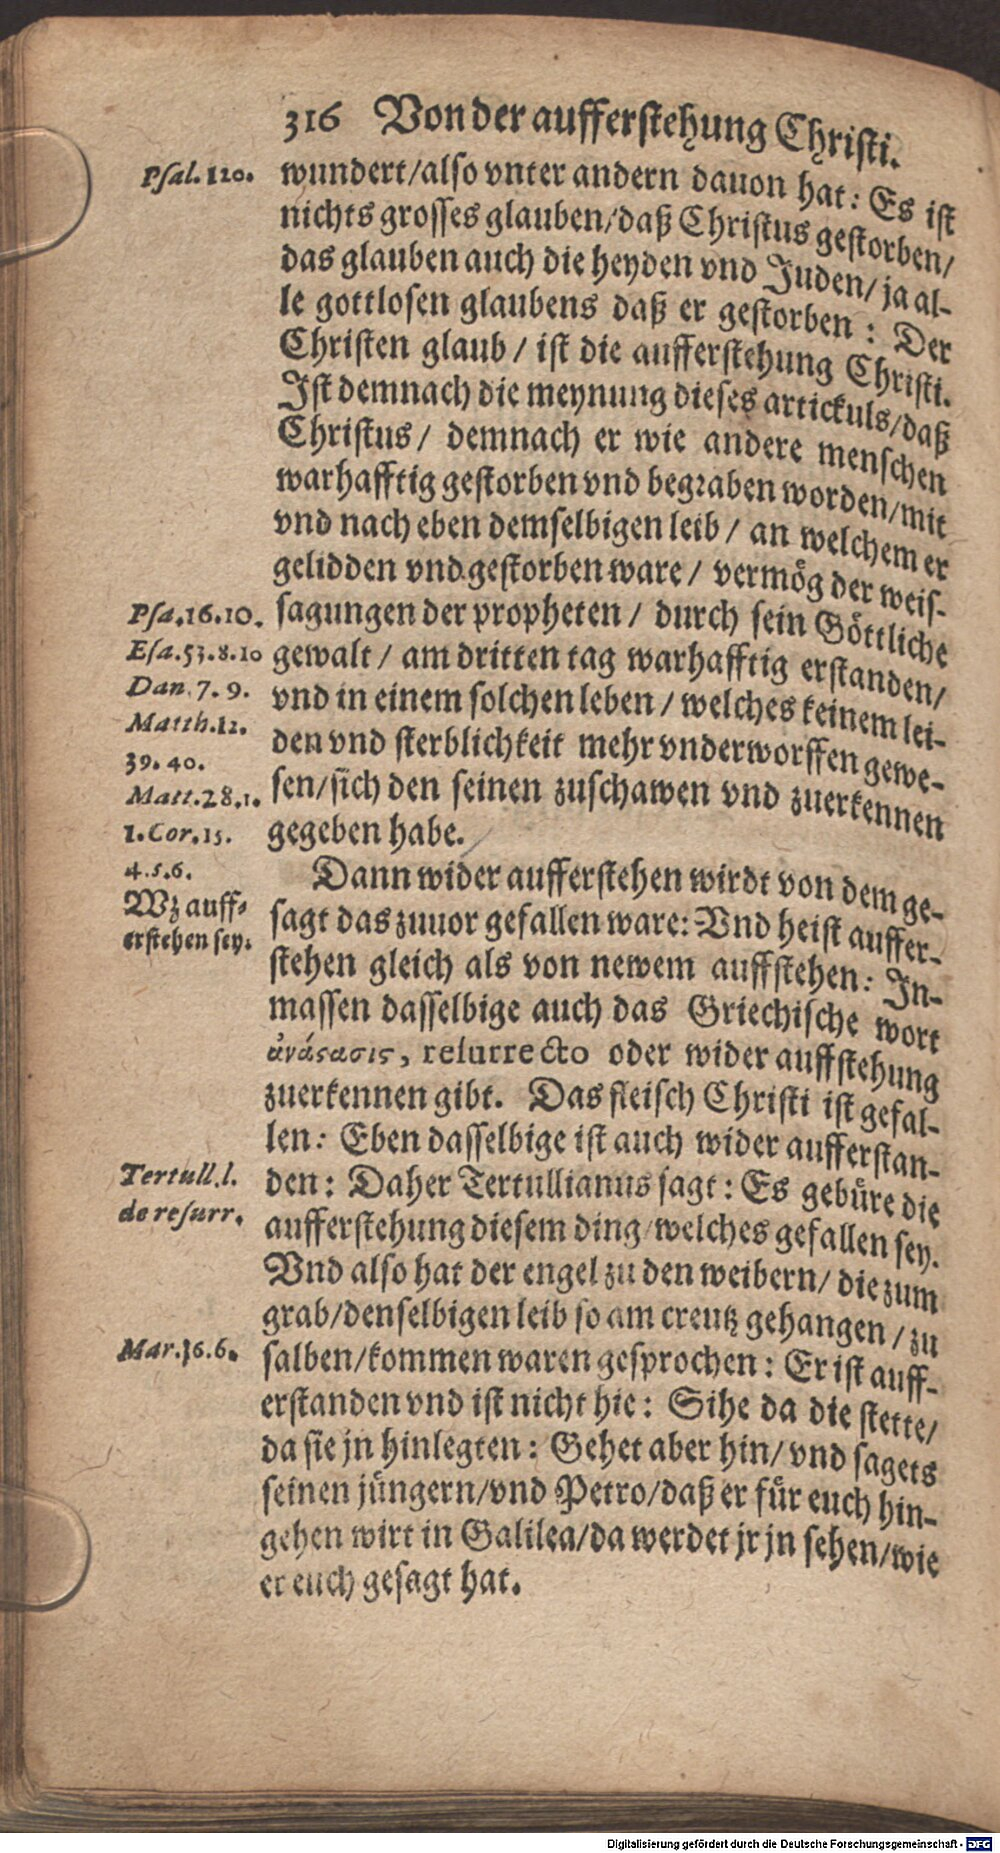 316 Von der aufferstehung Christi.
Psal. 120.
wundert/also vnter andern dauon hat: Es ist
nichts grosses glauben/daß Christus gestorben/
das glauben auch die heyden vnd Juden/ja al-
le gottlosen glaubens daß er gestorben: Der
Christen glaub/ist die aufferstehung Christi.
Ist demnach die meynung dieses artickuls/daß
Christus/ demnach er wie andere menschen
warhafftig gestorben vnd begraben worden/mit
vnd nach eben demselbigen leib/ an welchem er
gelidden vnd gestorben ware/ vermög der weis-
Psa.16.10.
sagungen der propheten/ durch sein Göttliche
Esa.53.8.10
gewalt/ am dritten tag warhafftig erstanden/
Dan. 7. 9.
vnd in einem solchen leben/ welches keinem lei-
Matth.12.
den vnd sterblichkeit mehr vnderworffen gewe-
39. 40.
Matt.28.1.
sen/sich den seinen zuschawen vnd zuerkennen
1. Cor. 15.
gegeben habe.
4. 5. 6.
Dann wider aufferstehen wirdt von dem ge-
Wz auff-
sagt das zuuor gefallen ware: Vnd heist auffer-
erstehen sey.
stehen gleich als von newem auffstehen: In-
massen dasselbige auch das Griechische wort
ἀνάϛασις, resurrectio oder wider auffstehung
zuerkennen gibt. Das fleisch Christi ist gefal-
len: Eben dasselbige ist auch wider aufferstan-
Tertull. l.
den: Daher Tertullianus sagt: Es gebüre die
de resurr.
aufferstehung diesem ding/welches gefallen sey.
Vnd also hat der engel zu den weibern/ die zum
grab/denselbigen leib so am creutz gehangen/zu
Mar.16.6.
salben/kommen waren gesprochen: Er ist auff-
erstanden vnd ist nicht hie: Sihe da die stette/
da sie jn hinlegten: Gehet aber hin/ vnd sagets
seinen jüngern/vnd Petro/daß er für euch hin-
gehen wirt in Galilea/da werdet jr jn sehen/wie
er euch gesagt hat.
Digitalisierung gefördert durch die Deutsche Forschungsgemeinschaft - DFG